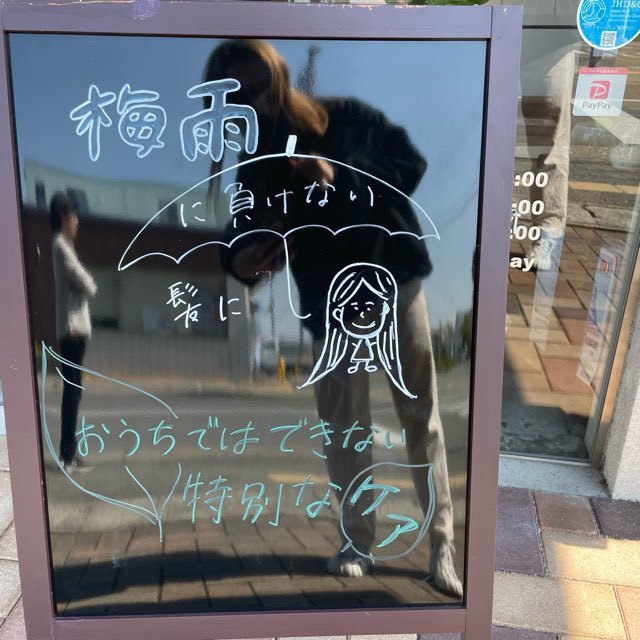 梅雨
に負けない
髪に
おうちではできない
特別な ケア
JHD&C
PayPay
:00
:00
:00
ay